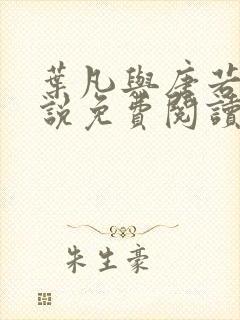 葉凡與唐若
說免費閱讀
朱生豪